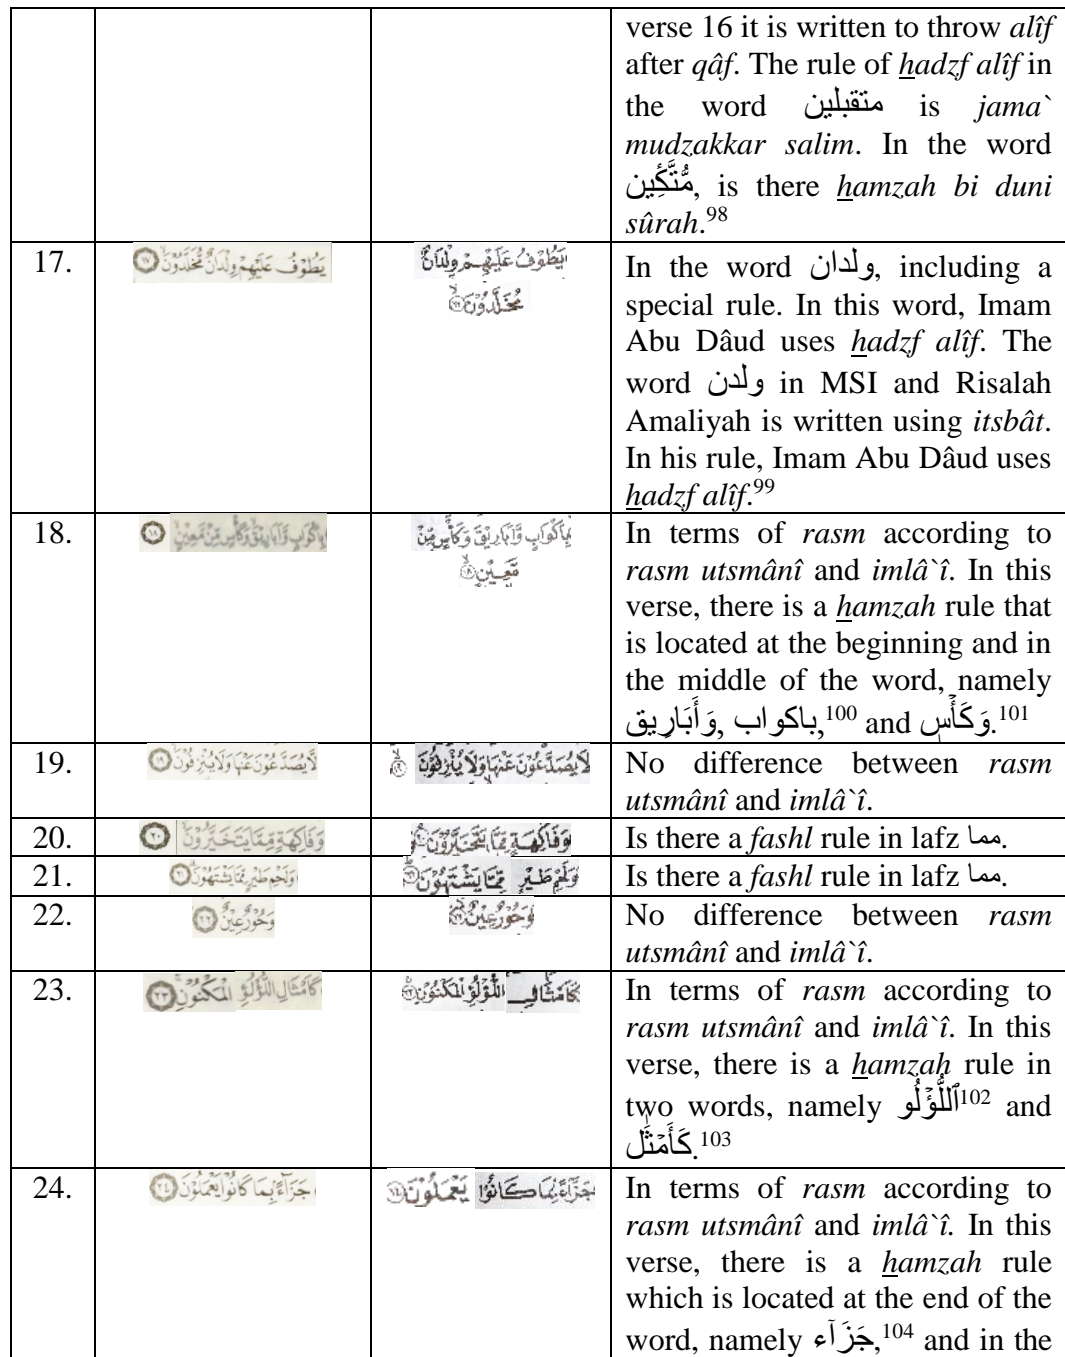 verse 16 it is written to throw alîf
after qâf. The rule of hadzf alîf in
the word متقبلين is jama`
mudzakkar salim. In the word
مُّتَّكِـِٔين, is there hamzah bi duni
sûrah.98
17.
يَطُوْفُ عَلَيْهِمْ وِلْدَانٌ مُّخَلَّدُوْنَۙ ١٧
يَطُوْفُ عَلَيْهِمْ وِلْدَانٌ
مُّخَلَّدُوْنَۙ ١٧
In the word ولدان, including a
special rule. In this word, Imam
Abu Dâud uses hadzf alîf. The
word ولدن in MSI and Risalah
Amaliyah is written using itsbât.
In his rule, Imam Abu Dâud uses
hadzf alîf.99
18.
بِاَكْوَابٍ وَّاَبَارِيْقَ وَكَأْسٍ مِّنْ مَّعِيْنٍۙ ١٨
بِاَكْوَابٍ وَّاَبَارِيْقَ وَكَأْسٍ مِّنْ
مَّعِيْنٍۙ ١٨
In terms of rasm according to
rasm utsmânî and imlâ`î. In this
verse, there is a hamzah rule that
is located at the beginning and in
the middle of the word, namely
باكواب ,وَأَبَارِيق,100 and وَكَأۡسٖ.101
19.
لَّا يُصَدَّعُوْنَ عَنْهَا وَلَا يُنْزِفُوْنَۙ ١٩
لَّا يُصَدَّعُوْنَ عَنْهَا وَلَا يُنْزِفُوْنَۙ ١٩
No difference between rasm
utsmânî and imlâ`î.
20.
وَفَاكِهَةٍ مِّمَّا يَتَخَيَّرُوْنَۙ ٢٠
وَفَاكِهَةٍ مِّمَّا يَتَخَيَّرُوْنَۙ ٢٠
Is there a fashl rule in lafz مما.
21.
وَلَحْمِ طَيْرٍ مِّمَّا يَشْتَهُوْنَۗ ٢١
وَلَحْمِ طَيْرٍ مِّمَّا يَشْتَهُوْنَۗ ٢١
Is there a fashl rule in lafz مما.
22.
وَحُوْرٌ عِيْنٌۙ ٢٢
وَحُوْرٌ عِيْنٌۙ ٢٢
No difference between rasm
utsmânî and imlâ`î.
23.
كَاَمْثَالِ اللُّؤْلُؤِ الْمَكْنُوْنِۚ ٢٣
كَاَمْثَالِ اللُّؤْلُؤِ الْمَكْنُوْنِۚ ٢٣
In terms of rasm according to
rasm utsmânî and imlâ`î. In this
verse, there is a hamzah rule in
two words, namely ٱللُّؤۡلُو102 and
كَأَمۡثَٰل.103
24.
جَزَاۤءًۢ بِمَا كَانُوْا يَعْمَلُوْنَ ٢٤
جَزَاۤءًۢ بِمَا كَانُوْا يَعْمَلُوْنَ ٢٤
In terms of rasm according to
rasm utsmânî and imlâ`î. In this
verse, there is a hamzah rule
which is located at the end of the
word, namely جَزَآء,104 and in the